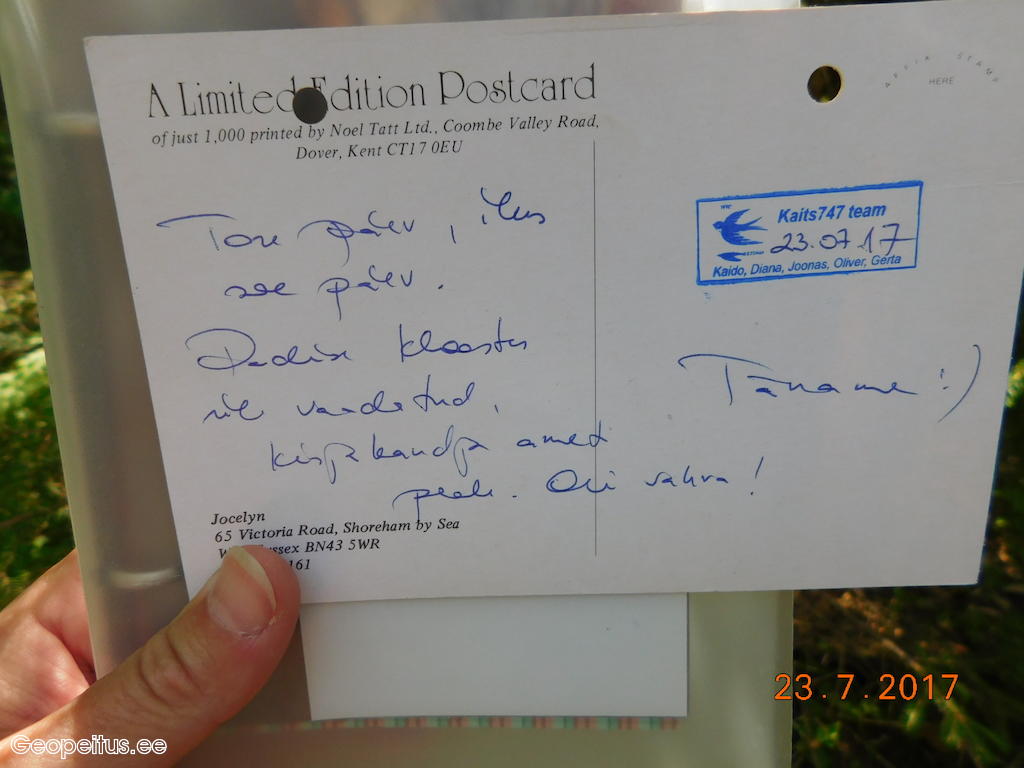 A Limited Edition Postcard
of just 1,000 printed by Noel Tatt Ltd., Coombe Valley Road,
Dover, Kent CT17 0EU
AFFIX STAMP
HERE
Tore päev, ilus
see päev.
Padise klooster
sai vaadatud,
amet
peale. Oli vahva!
Kaits747 team
23.07.17
Kaido, Diana, Joonas, Oliver, Gerta
Täname :)
Jocelyn
65 Victoria Road, Shoreham by Sea
BN43 5WR
161
23.7.2017
Geopeitus.ee